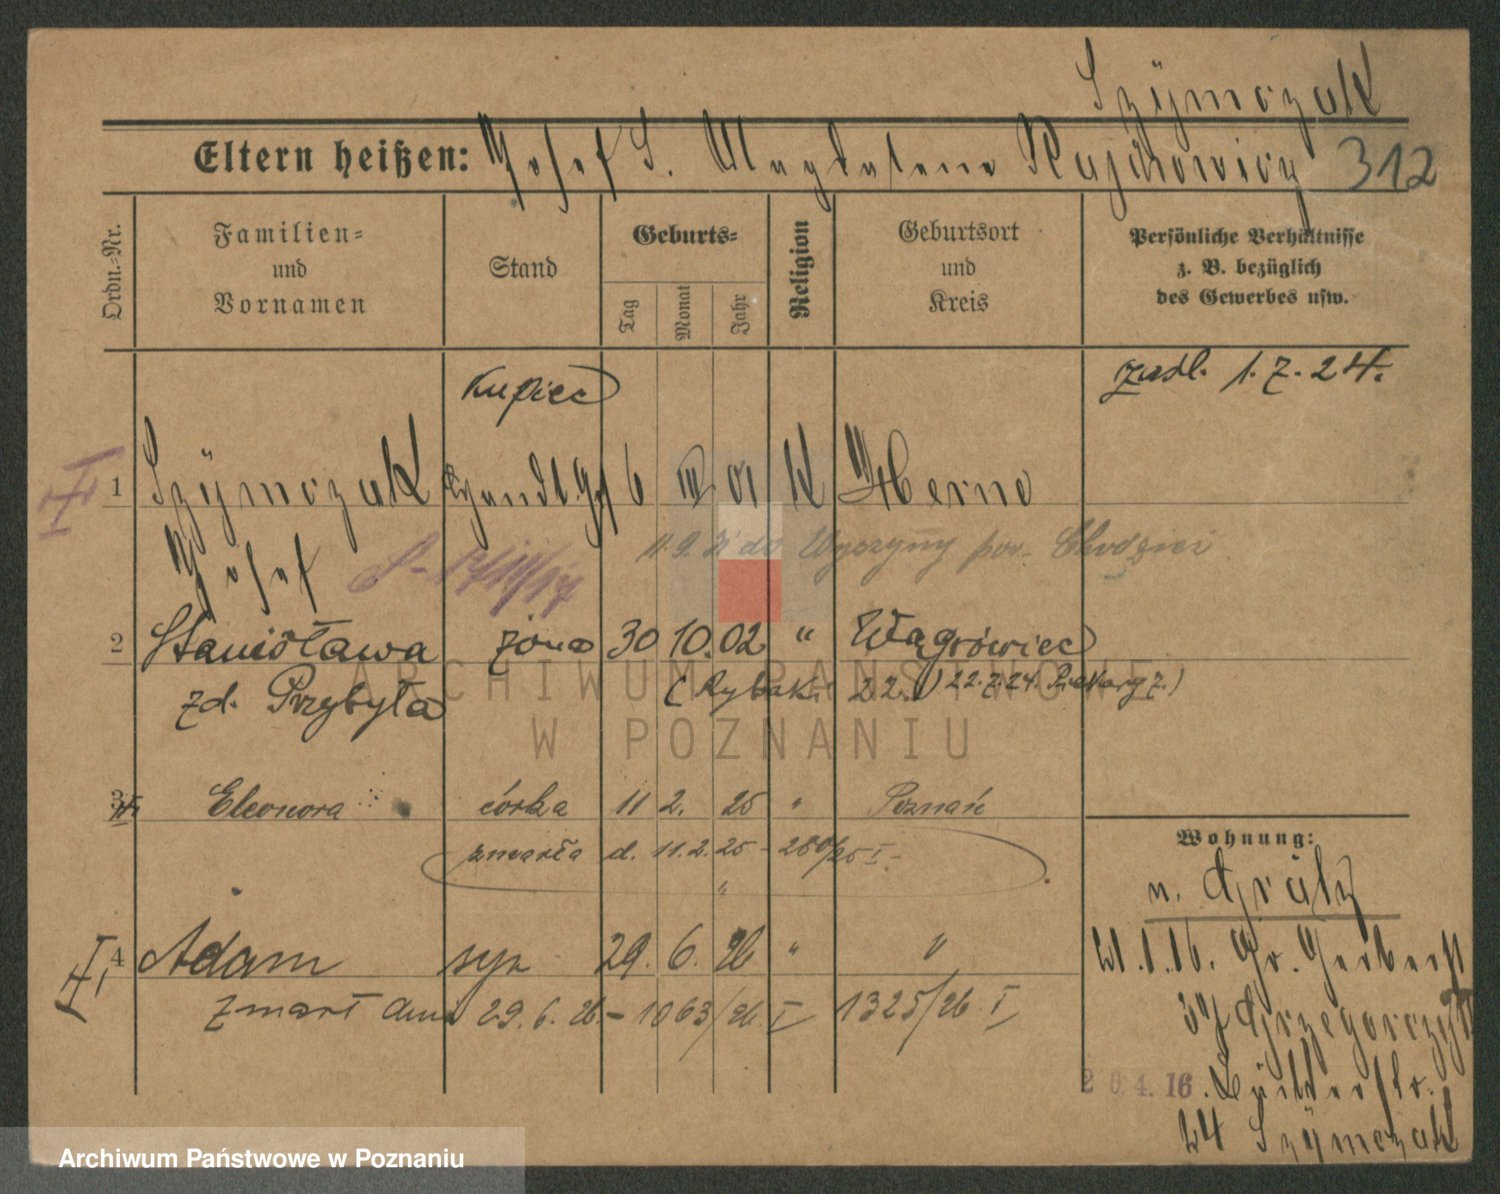 Szymczak
Eltern heißen: Josef S. Magdalena Rajchowicz 312
Ordn.-Nr.
Familien-
und
Vornamen
Stand
Geburts-
Tag
Monat
Jahr
Religion
Geburtsort
und
Kreis
Persönliche Verhältnisse
z. B. bezüglich
des Gewerbes usw.
Kupiec
zaśl. 1.7.24.
1 Szymczak Handl. 6 III 01 K Herne
Josef
11.9. do Wyszyny pow. Chodzież
2 Stanisława żona 30 10. 02 " Wągrówiec
zd. Przybyła (Rybaki 22.) 22.7.24.
3 Eleonora córka 11 2. 25 " Poznań
zmarła d. 11.2.25 - 250/25 I -
"
4 Adam syn 29. 6. 26 " "
zmarł dnia 29.6.26. - 1063/26 I 1325/26 I
Wohnung:
n. Grätz
21.1.16. Gr. Gerberst
39 Grzegorczyk
20.4.16.
24 Szymczak
ARCHIWUM PAŃSTWOWE
W POZNANIU
Archiwum Państwowe w Poznaniu